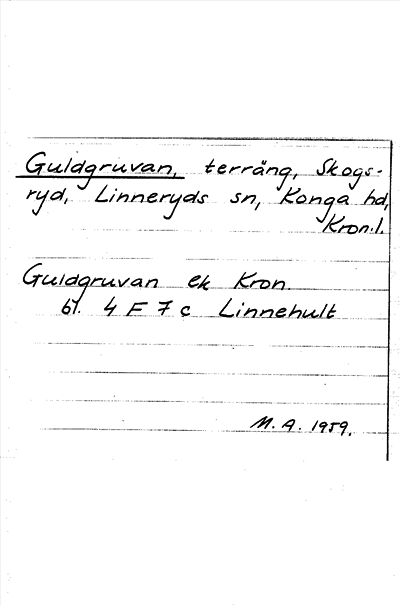 Guldgruvan, terräng, Skogs-
ryd, Linneryds sn, Konga hd,
Kron.l.
Guldgruvan ek Kron
bl. 4 F 7 c Linnehult
M. A. 1959.